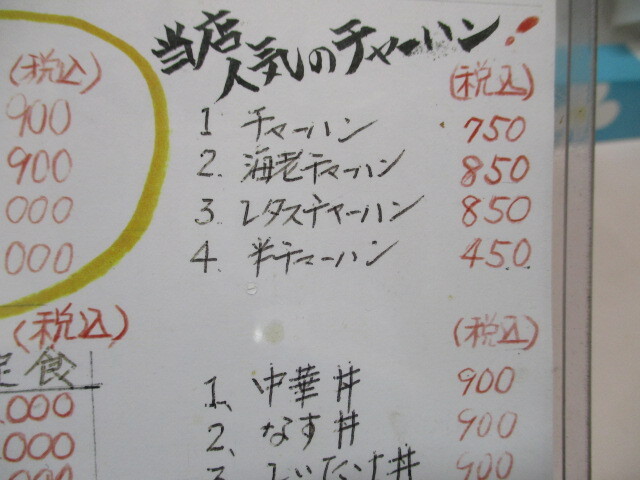 当店
人気のチャーハン!
(税込)
1 チャーハン 750
2. 海老チャーハン 850
3. レタスチャーハン 850
4. 半チャーハン 450
(税込)
1、中華丼 900
2、なす丼 900
3 しいたけ丼 900
(税込)
900
900
000
000
(税込)
定食
.000
.000
000